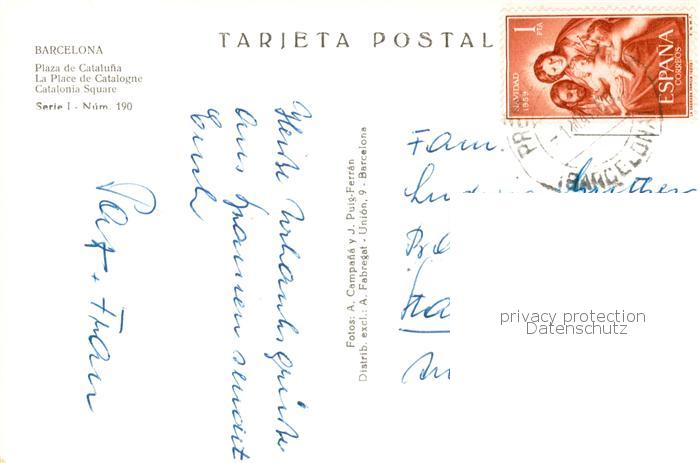 BARCELONA
Plaza de Cataluña
La Place de Catalogne
Catalonia Square
Serie I - Núm. 190
TARJETA POSTAL
1
PTA
NAVIDAD
1959
ESPAÑA
CORREOS
BARCELONA
Heiße Urlaubsgrüße
aus Spanien sendet
Euch
+ Frau
Fotos: A. Campañá y J. Puig-Ferrán
Distrib. excl.: A. Fabregat - Unión, 9 - Barcelona
Fam.
privacy protection
Datenschutz